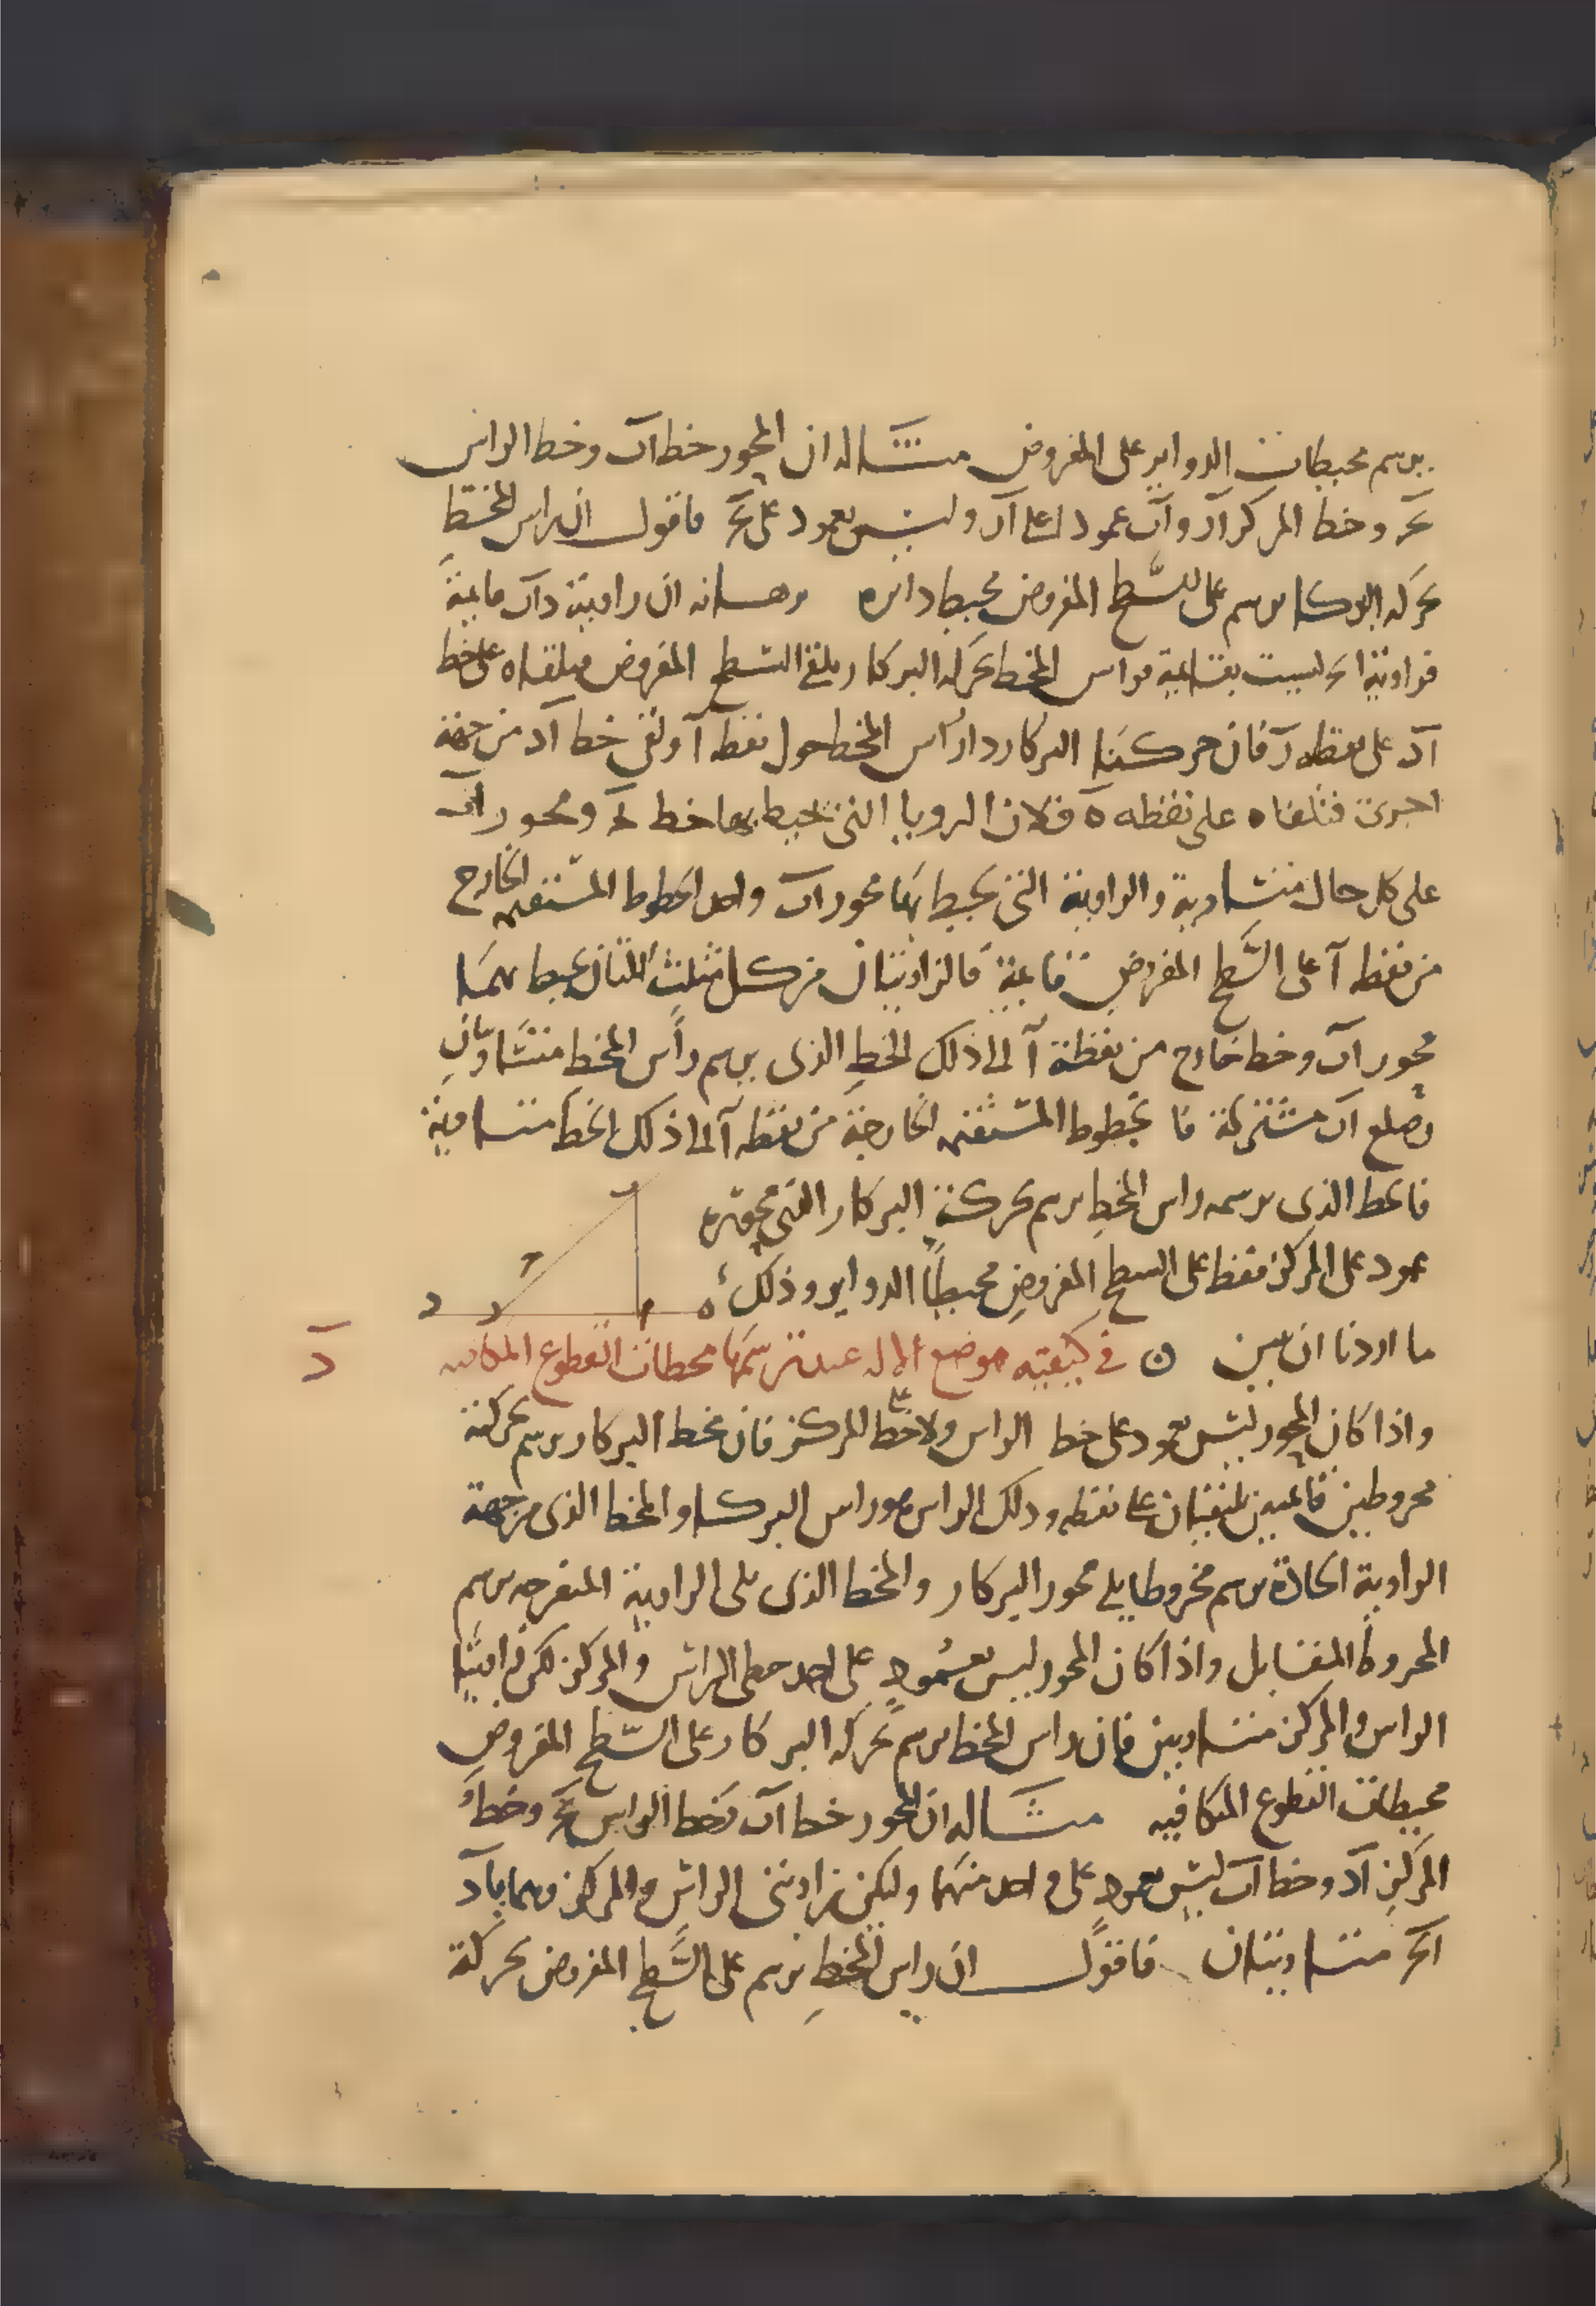 يرسم محيطات الدواير على المفروض مثاله ان المحور خط اب وخط الراس
بج وخط المركز اد واب عمود على اد وليس بعمود على بج فاقول ان راس المخط
بحركه البركار يرسم على السطح المفروض محيط دائره برهانه ان زاوية داب قايمة
فزاوية ابج ليست بقايمة فراس المخط بحركه البركار يلقى السطح المفروض فيلقاه على خط
اد على نقطه ر فان حركنا البركار دار راس المخط حول نقطه ا ولقى خط اد من جهة
اخرى فتلقاه على نقطه ه فلان الزوايا التي تحيط بها خط بج ومحور اب
على كل حال متساوية والزاوية التي يحيط بها محور اب واحد الخطوط المستقيمه الخارج
من نقطه ا على السطح المفروض قايمة فالزاويتان من كل مثلث اللتان يحيط بهما
محور اب وخط خارج من نقطة ا الى ذلك الخط الذى يرسم راس المخط متساويتان
وضلع اب مشتركة فالخطوط المستقيمه الخارجة من نقطه ا الى ذلك الخط متساوية
فالخط الذى يرسمه راس المخط يرسم بحركة البركار التي محوره
عمود على المركز فقط على السطح المفروض محيطا الدواير وذلك
ما اردنا ان نبين ن في كيفيته موضع الاله عند ترسمها محطات القطوع المكافيه
د
واذا كان المحور ليس بعمود على خط الراس ولا على خط المركز فان مخط البركار يرسم بحركته
مخروطين قايمين يلتقيان على نقطه وذلك الراس هو راس البركار والمخط الذى من جهة
الزاوية الحادة يرسم مخروطا يلي محور البركار والمخط الذى يلي الزاوية المنفرجه يرسم
المخروط المقابل واذا كان المحور ليس بعمود على احد خطى الراس والمركز لكن زاويتا
الراس والمركز متساويين فان راس المخط يرسم بحركه البركار على السطح المفروض
محيطات القطوع المكافيه مثاله ان المحور خط اب وخط الراس بج وخط
المركز اد وخط اب ليس بعمود على واحد منهما وليكن زاويتى الراس والمركز وهما باد
ابج متساويتان فاقول ان راس المخط يرسم على السطح المفروض بحركة
ب
ج
د ر ا ه